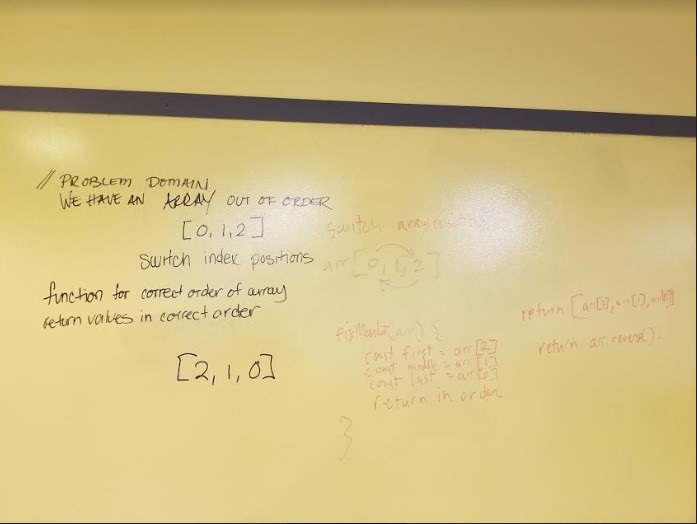 // PROBLEM DOMAIN
WE HAVE AN ARRAY OUT OF ORDER
[0, 1, 2]
switch index positions
function for correct order of array
return values in correct order
[2, 1, 0]
switch array
arr[0, 1, 2]
(arr) {
const first = arr[2]
const middle = arr[1]
const last = arr[0]
return in order
}
return [arr[2], arr[1], arr[0]]
return arr.reverse()